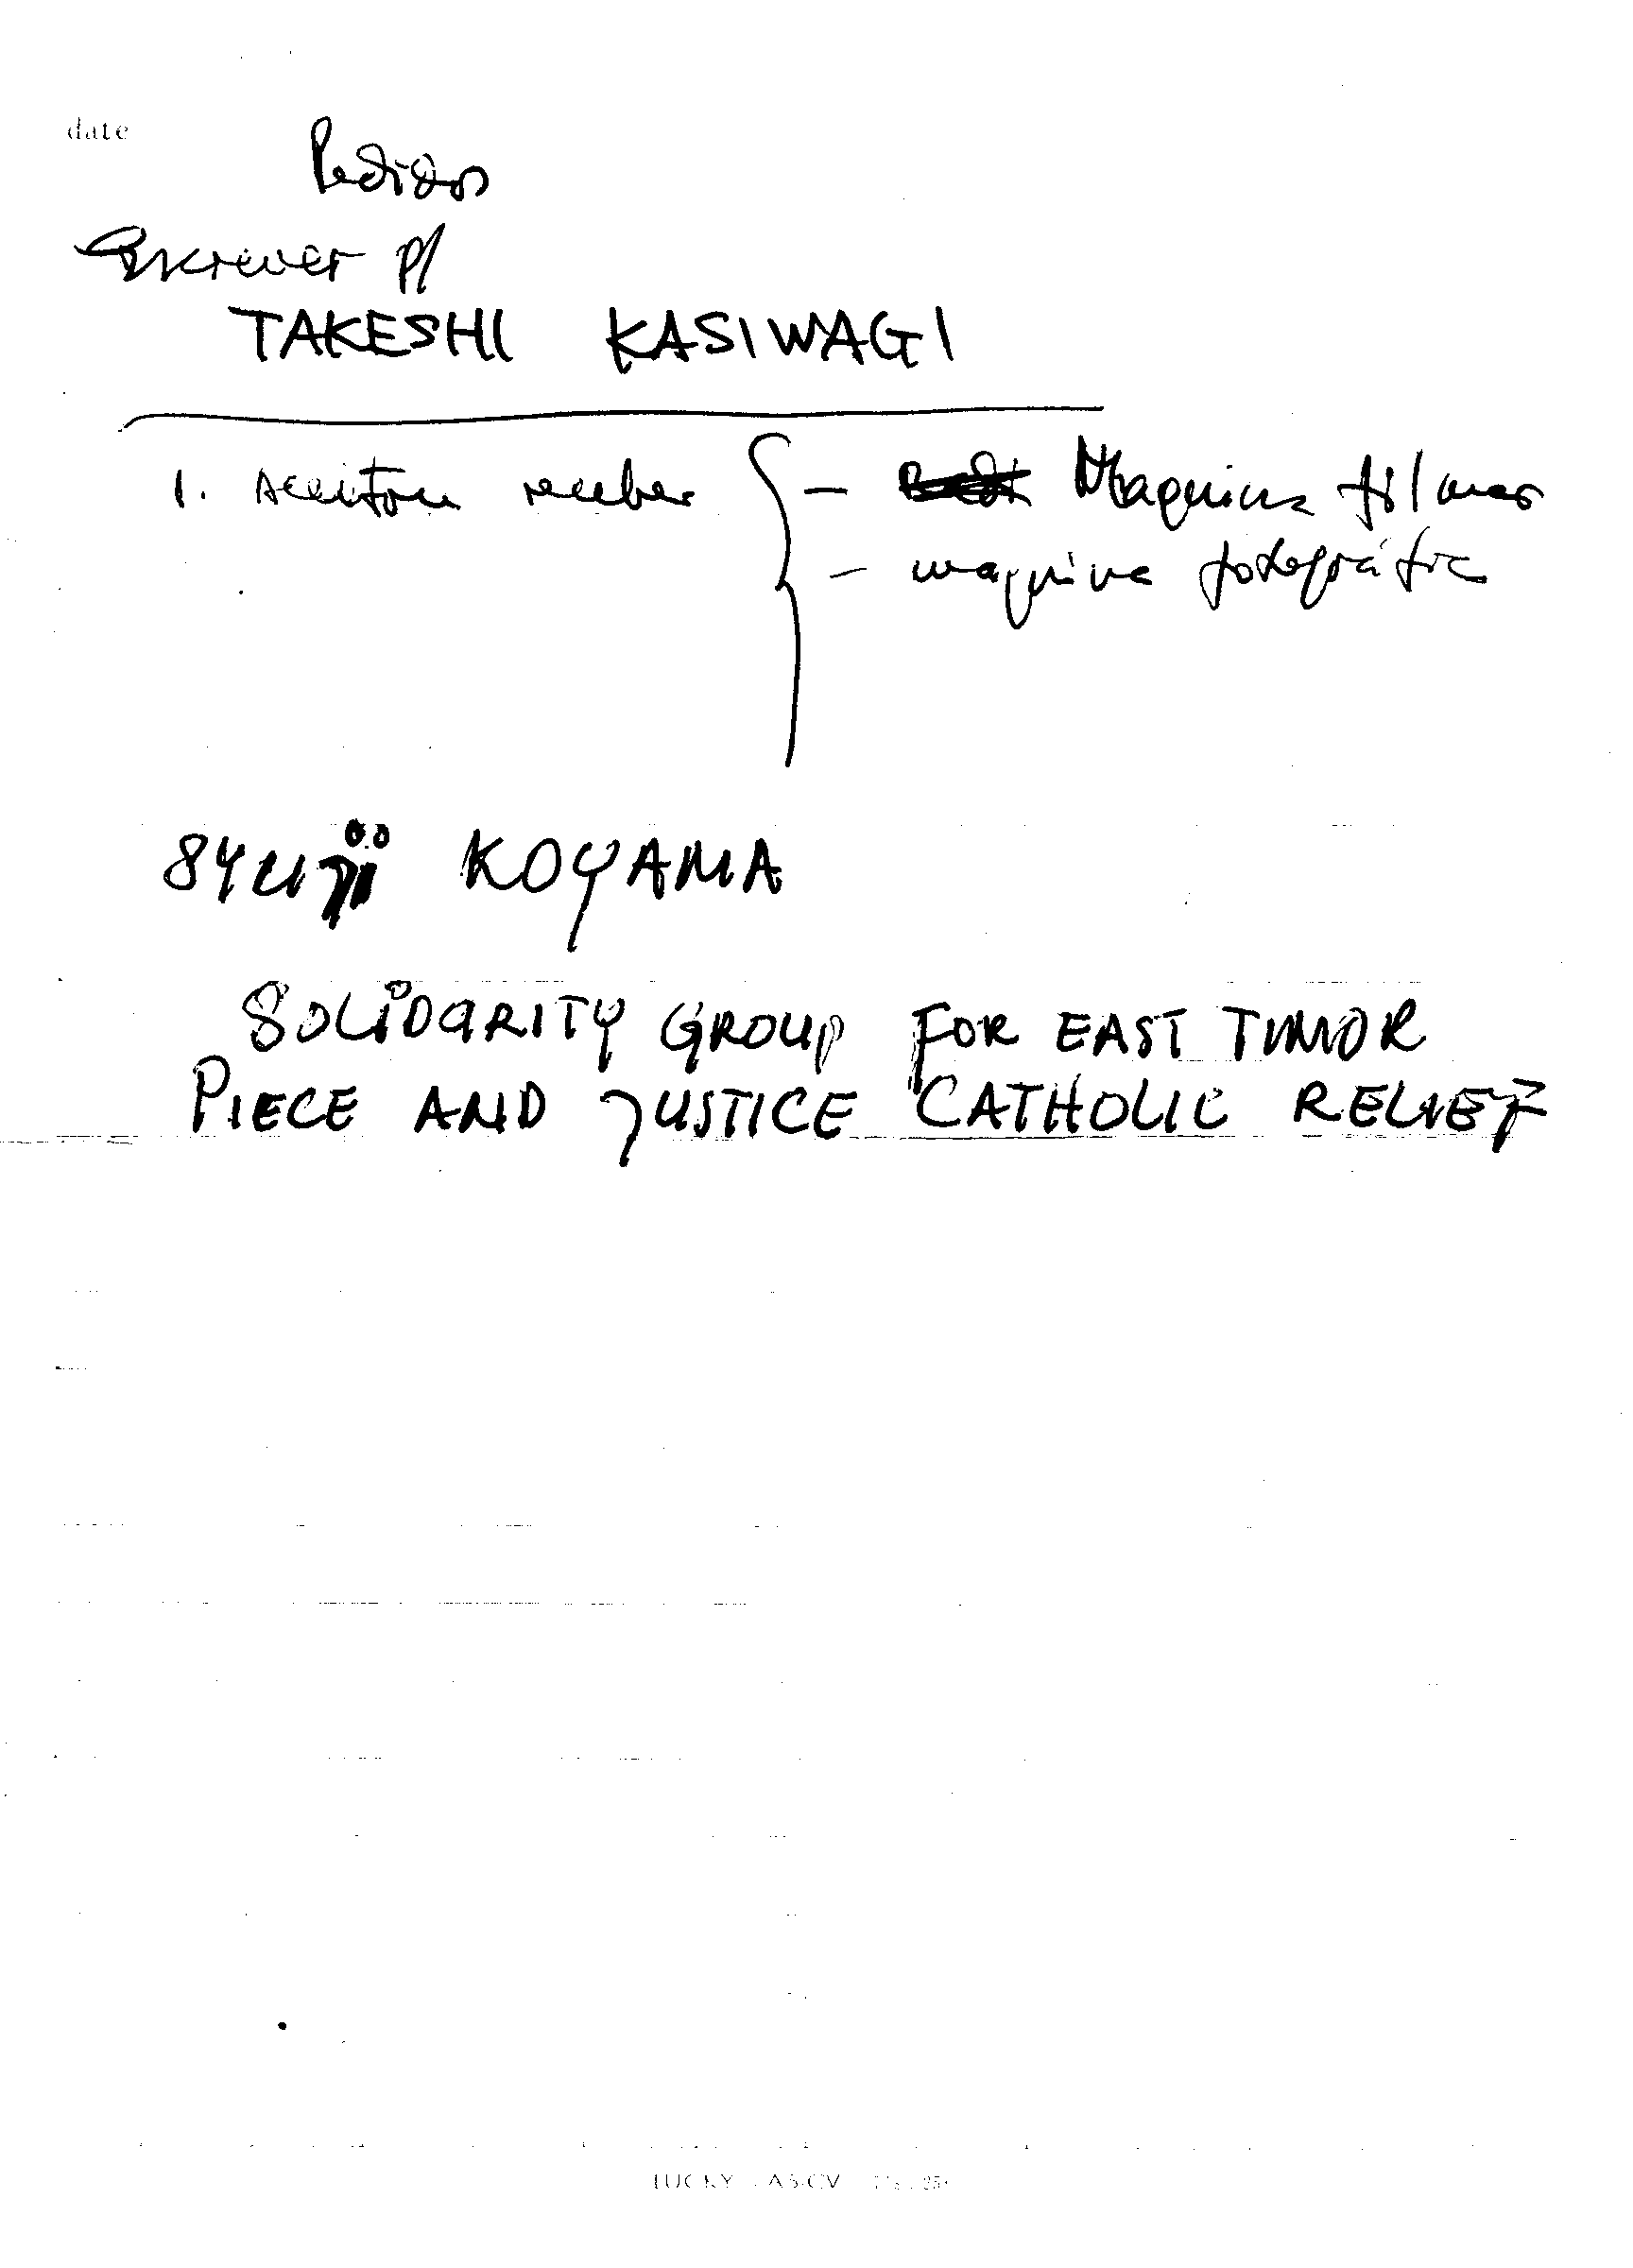 date
Pedidos
Escrever p/
TAKESHI KASIWAGI
1. Aceitou receber { - Maquina filmar
- maquina fotográfica
Syuuji KOYAMA
SOLIDARITY GROUP FOR EAST TIMOR
PIECE AND JUSTICE CATHOLIC RELIEF
LUCKY